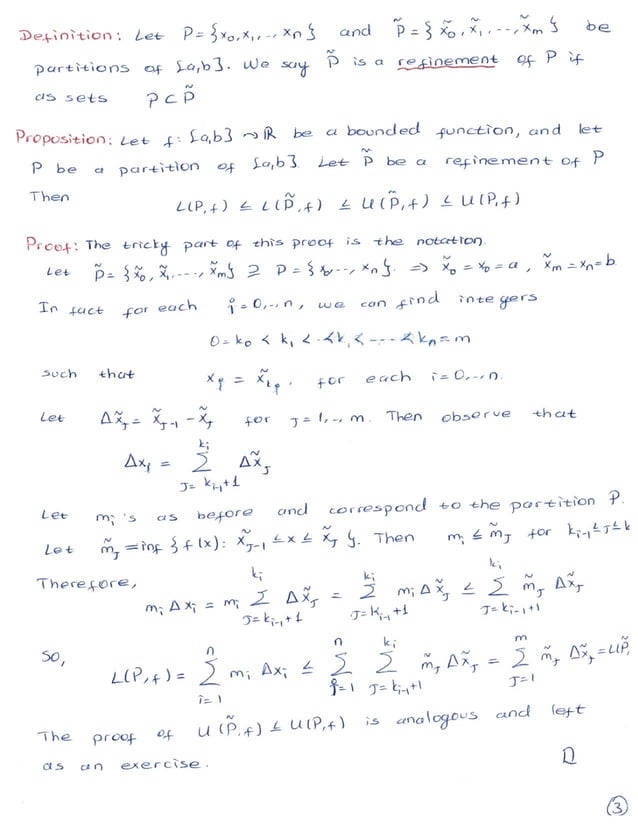 Definition: Let P = {x₀, x₁, .., xₙ} and P̃ = {x̃₀, x̃₁, .., x̃ₘ} be
partitions of [a,b]. We say P̃ is a refinement of P if
as sets P ⊂ P̃
Proposition: Let f: [a,b] → ℝ be a bounded function, and let
P be a partition of [a,b]. Let P̃ be a refinement of P
Then
L(P,f) ≤ L(P̃,f) ≤ U(P̃,f) ≤ U(P,f)
Proof: The tricky part of this proof is the notation.
Let P̃ = {x̃₀, x̃₁, ...., x̃ₘ} ⊇ P = {x₀..., xₙ}. ⇒ x̃₀ = x₀ = a, x̃ₘ = xₙ = b
In fact for each i = 0,..., n, we can find integers
0 = k₀ < k₁ < ..< kᵢ < --- < kₙ = m
such that xᵢ = x̃ₖᵢ, for each i = 0,..., n.
Let Δx̃ⱼ = x̃ⱼ₋₁ - x̃ⱼ for j = 1,.., m. Then observe that
Δxᵢ = Σ_{j=kᵢ₋₁+1}^{kᵢ} Δx̃ⱼ
Let mᵢ's as before and correspond to the partition P.
Let m̃ⱼ = inf {f(x): x̃ⱼ₋₁ ≤ x ≤ x̃ⱼ}. Then mᵢ ≤ m̃ⱼ for kᵢ₋₁ ≤ j ≤ k
Therefore,
mᵢ Δxᵢ = mᵢ Σ_{j=kᵢ₋₁+1}^{kᵢ} Δx̃ⱼ = Σ_{j=kᵢ₋₁+1}^{kᵢ} mᵢ Δx̃ⱼ ≤ Σ_{j=kᵢ₋₁+1}^{kᵢ} m̃ⱼ Δx̃ⱼ
So,
L(P,f) = Σ_{i=1}^{n} mᵢ Δxᵢ ≤ Σ_{i=1}^{n} Σ_{j=kᵢ₋₁+1}^{kᵢ} m̃ⱼ Δx̃ⱼ = Σ_{j=1}^{m} m̃ⱼ Δx̃ⱼ = L(P̃,
The proof of U(P̃,f) ≤ U(P,f) is analogous and left
as an exercise. □
3